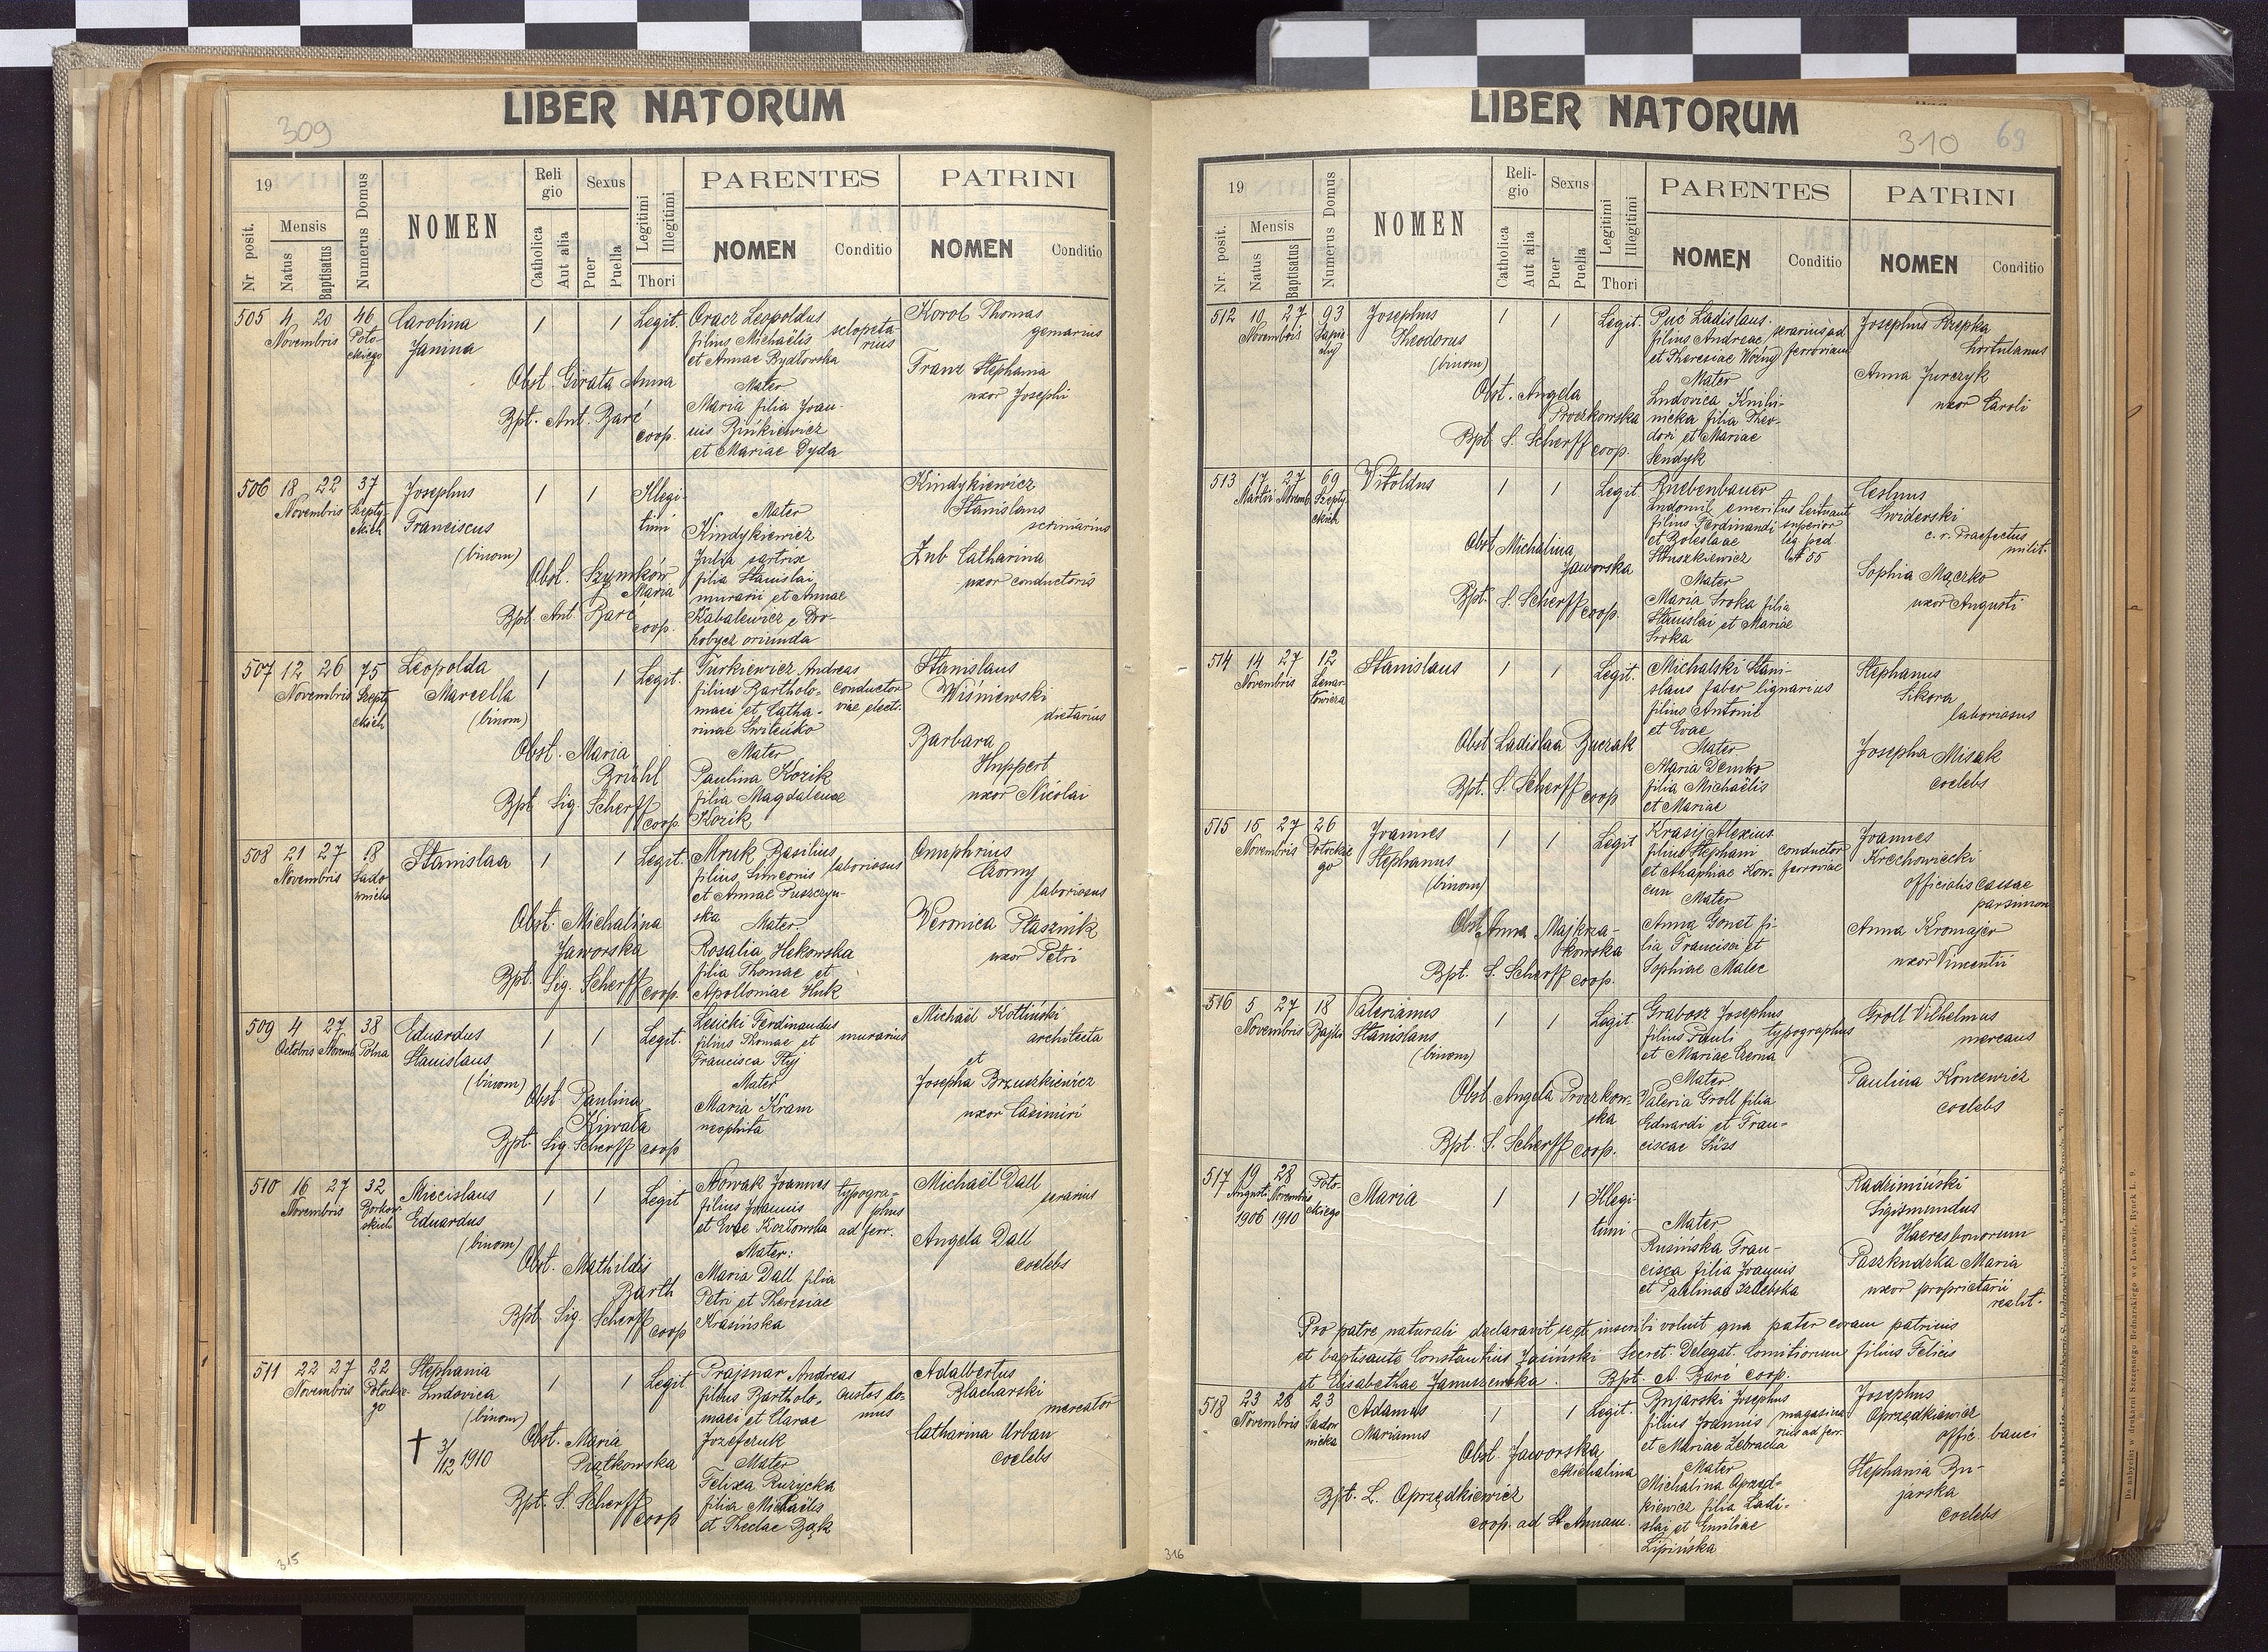 LIBER NATORUM
309
19
Mensis
Nr. posit.
Natus
Baptisatus
Numerus Domus
NOMEN
Religio
Catholica
Aut alia
Sexus
Puer
Puella
Legitimi
Illegitimi
Thori
PARENTES
NOMEN
Conditio
PATRINI
NOMEN
Conditio
505 4 20 46
Novembris
Potockiego
Carolina
Janina
1 1 Legit.
Oracz Leopoldus
sclopetarius
filius Michaëlis
et Annae Bydłowska
Mater
Maria filia Joannis Bińkiewicz
et Mariae Dyda
Obst. Girata Anna
Bpt. Ant. Baré
coop.
Korol Thomas
gemarius
Franz Stephania
uxor Josephi
506 18 22 37
Novembris
Szeptyckich
Josephus
Franciscus
(binom)
1 1 Illegitimi
Mater
Kindykiewicz
Julia sartrix
filia Stanislai
murarii et Annae
Kabalewicz e Drohobycz oriunda
Obst. Szymków
Maria
Bpt. Ant. Baré
coop.
Kindykiewicz
Stanislaus
scriniarius
Zub Catharina
uxor conductoris
507 12 26 75
Novembris
Szeptyckich
Leopolda
Marcella
(binom)
1 1 Legit.
Turkiewicz Andreas
filius Bartholomaei et Catharinae Switenko
conductor
viae elect.
Mater
Paulina Kozik
filia Magdalenae
Kozik
Obst. Maria
Brühl
Bpt. Sig. Scherff
coop.
Stanislaus
Wisniewski
dietarius
Barbara
Huppert
uxor Nicolai
508 21 27 18
Novembris
Stanislaa
1 1 Legit.
Mruk Basilius
filius Simeonis laboriosus
et Annae Puszczynska
Mater
Rosalia Hekowska
filia Thomae et
Apolloniae Huk
Obst. Michalina
Jaworska
Bpt. Sig. Scherff
coop.
Onuphrius
Czorny
laboriosus
Veronica Ptasznik
uxor Petri
509 4 27 38
Octobris Novemb. Polna
Eduardus
Stanislaus
(binom)
1 1 Legit.
Lesicki Ferdinandus
filius Thomae et murarius
Francisca Styj
Mater
Maria Kram
neophita
Obst. Paulina
Kiwała
Bpt. Sig. Scherff coop
Michaël Kotliński
architecta
et
Josepha Brzuszkiewicz
uxor Casimiri
510 16 27 32
Novembris
Borkowskich
Miecislaus
Eduardus
(binom)
1 1 Legit
Nowak Joannes
filius Joannis
et Evae Kozłowska
typographus
ad ferr.
Mater:
Maria Dall filia
Petri et Theresiae
Krasińska
Obst. Mathildis
Barth
Bpt. Sig. Scherff
coop
Michaël Dall
serarius
Angela Dall
coelebs
511 22 27 22
Novembris
Potockiego
Stephania
Ludovica
(binom)
1 1 Legit
Prajsnar Andreas
filius Bartholomaei et Clarae
custos domus
Jozefczuk
Mater
Felixa Ruzycka
filia Michaëlis
et Theclae Bąk
† 3/12 1910
Obst. Maria
Piątkowska
Bpt. S. Scherff
coop
Adalbertus
Blacharski
mercator
Catharina Urban
coelebs
315
LIBER NATORUM
310 69
19
Mensis
Nr. posit.
Natus
Baptisatus
Numerus Domus
NOMEN
Religio
Catholica
Aut alia
Sexus
Puer
Puella
Legitimi
Illegitimi
Thori
PARENTES
NOMEN
Conditio
PATRINI
NOMEN
Conditio
512 10 27 93
Novembris
Josephus
Theodorus
(binom)
1 1 Legit.
Puc Ladislaus
filius Andreae
et Theresiae Woźny
serarius ad
ferroviam
Mater
Ludovica Knihinicka filia Theodori et Mariae
Sendyk
Obst. Angela
Proczkowska
Bpt. S. Scherff coop.
Josephus Rzepka
hortulanus
Anna Jurczyk
uxor Caroli
513 17 27 69
Martii Novemb.
Szeptyckich
Vitoldus
1 1 Legit.
Ludomil emeritus Leitnant
filius Ferdinandi superior
et Boleslaae leg ped
Struszkiewicz № 55
Mater
Maria Sroka filia
Stanislai et Mariae
Sroka
Obst Michalina
Jaworska
Bpt. S. Scherff
coop.
Ceslaus
Swiderski
c. r. Praefectus
milit.
Sophia Mączko
uxor Augusti
514 14 27 12
Novembris
Lenartowicza
Stanislaus
1 1 Legit.
Michalski Stanislaus faber lignarius
filius Antonii
et Evae
Mater
Maria Demko
filia Michaëlis
et Mariae
Obst Ladislaa Buczak
Bpt. S. Scherff
coop
Stephanus
Sikora
laboriosus
Josepha Misak
coelebs
515 15 27 26
Novembris
Potockiego
Joannes
Stephanus
(binom)
1 1 Legit
Krasij Alexius
filius Stephani
conductor
ferroviae
Mater
Anna Gonet filia Francisci et
Sophiae Malec
Obst Anna Majkrzakowska
Bpt. S. Scherff coop.
Joannes
Krechowiecki
officialis cassae
parsimon
Anna Kromajer
uxor Vincentii
516 5 27 18
Novembris Bajki
Valerianus
Stanislaus
(binom)
1 1 Legit
Grabosz Josephus
filius Pauli typographus
et Mariae Czerna
Mater
Valeria Groll filia
Eduardi et Franciscae Süss
Obst Angela Proczkowska
Bpt. S. Scherff coop.
Groll Vilhelmus
mercans
Paulina Koncewicz
coelebs
517 19 28
Augusti Novembris
1906 1910
Potockiego
Maria
1 1 Illegitimi
Mater
Rusińska Francisca filia Joannis
et Paulinae Zalebska
Radzimiński
Sigismundus
Haeres bonorum
Paszkudzka Maria
uxor proprietarii
realit.
Pro patre naturali declaravit se et inscribi voluit qua pater coram patrinis
et baptisante Constantius Jasiński Secret. Delegat. Comitiorum filius Felicis
et Elisabethae Januszewska. Bpt. A. Baré coop.
518 23 28 23
Novembris
Sadownicka
Adamus
Marianus
1 1 Legit.
Bujarski Josephus
filius Joannis
et Mariae Zebracka
magasinarius ad ferr.
Mater
Michalina Oprzędkiewicz filia Ladislai et Emiliae
Lipińska
Obst. Jaworska
Michalina
Bpt. L. Oprzędkiewicz
coop. ad St Annam.
Josephus
Oprzędkiewicz
offic. banci
Stephania Bujarska
coelebs
316
Do nabycia w drukarni Szczęsnego Bednarskiego we Lwowie, Rynek L. 9.